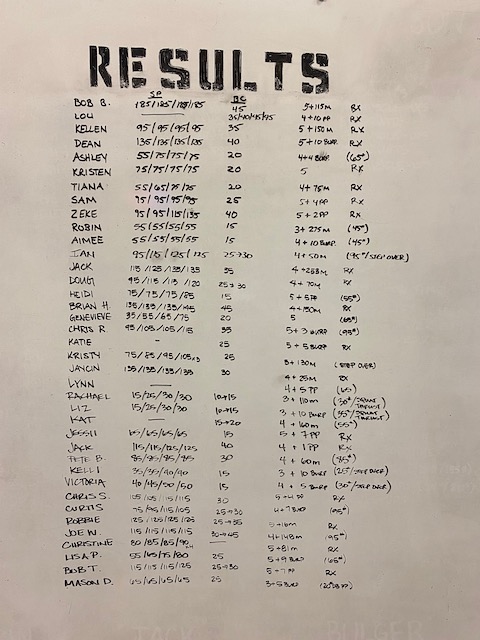 RESULTS
SP BC
BOB B. 185/185/185/185 45 5+115M RX
LOU 35/40/45/45 4+10 PP RX
KELLEN 95/95/95/95 35 5+150M RX
DEAN 135/135/135/135 40 5+10 BURP RX
ASHLEY 55/75/75/75 20 4+4 BURP (65#)
KRISTEN 75/75/75/75 20 5 RX
TIANA 55/65/75/75 20 4+75M RX
SAM 75/95/95/95 25 5+4PP RX
ZEKE 95/95/115/135 40 5+2PP RX
ROBIN 55/55/55/55 15 3+275M (45#)
AIMEE 55/55/55/55 15 4+10 BURP (45#)
IAN 95/115/125/135 25→30 4+50M (95#/STEP OVER)
JACK 115/125/135/135 35 4+283M RX
DOUG 95/115/115/120 25→30 4+70M RX
HEIDI 75/75/75/85 15 5+5PP (55#)
BRIAN H. 135/135/135/145 45 4+150M RX
GENEVIEVE 35/55/65/75 20 5 (65#)
CHRIS R. 95/105/105/115 35 5+3 BURP (95#)
KATIE - 25 5+5 BURP RX
KRISTY 75/85/95/105x3 25
JAYCIN 135/135/135/135 30 3+130M (STEP OVER)
LYNN 4+25M RX
RACHAEL 15/25/30/30 10→15 4+5PP (65)
LIZ 15/25/30/30 10→15 3+110m (30#/SQUAT THRUST)
KAT 15→20 3+10 BURP (35#/SQUAT THRUST)
JESSII 65/65/65/65 15 4+160m (55#)
JACK 115/115/125/125 40 5+7PP RX
PETE B. 85/95/95/95 30 4+1PP RX
KELLI 35/35/40/40 15 4+60m (35#)
VICTORIA 40/45/50/50 15 3+10 BURP (25#/STEP OVER)
CHRIS S. 105/105/115/115 30 4+5 BURP (30#/STEP OVER)
CURTIS 75/95/115/105 25→30 RX
ROBBIE 125/125/125/125 25→35 4+7 BURP (95#)
JOE W. 115/115/115/115 30→45 5+16m RX
CHRISTINE 80/85/85/90 4+148m (95#)
LISA P. 55/65/75/80 25 5+81m RX
BOB T. 115/115/115/125 25→30 5+9 BURP (65#)
MASON D. 65/65/65/65 25 5+7PP RX
3+5 BURP